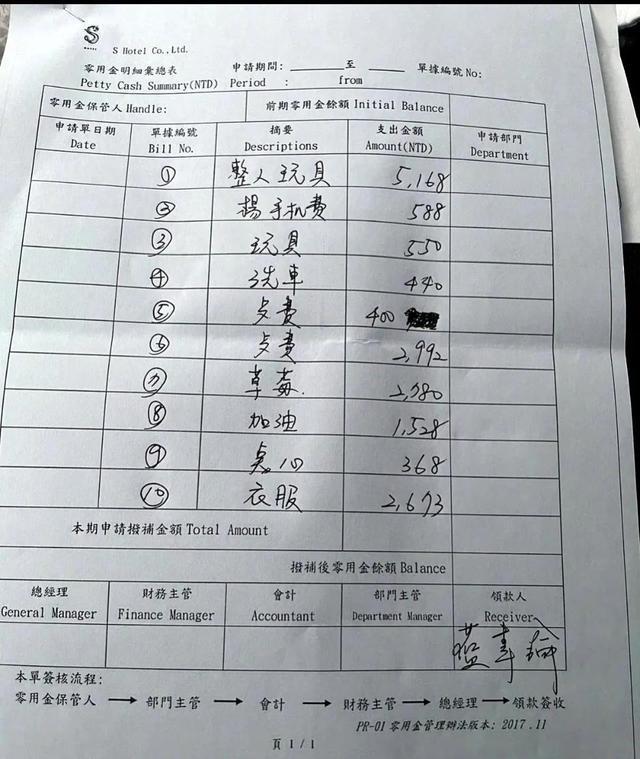 S
S Hotel Co.,Ltd.
零用金明細彙總表 申請期間: ______ 至 ______ 單據編號 No:
Petty Cash Summary(NTD) Period : from
零用金保管人 Handle: 前期零用金餘額 Initial Balance
申請單日期 單據編號 摘要 支出金額 申請部門
Date Bill No. Descriptions Amount(NTD) Department
① 整人玩具 5,168
② 楊手机費 588
③ 玩具 550
④ 洗車 440
⑤ 点費 400
⑥ 点費 2,992
⑦ 草莓 2,780
⑧ 加油 1,528
⑨ 點心 368
⑩ 衣服 2,673
本期申請撥補金額 Total Amount
撥補後零用金餘額 Balance
總經理 財務主管 會計 部門主管 領款人
General Manager Finance Manager Accountant Department Manager Receiver
本單簽核流程:
零用金保管人 → 部門主管 → 會計 → 財務主管 → 總經理 → 領款簽收
PR-01 零用金管理辦法版本: 2017.11
頁 1 / 1